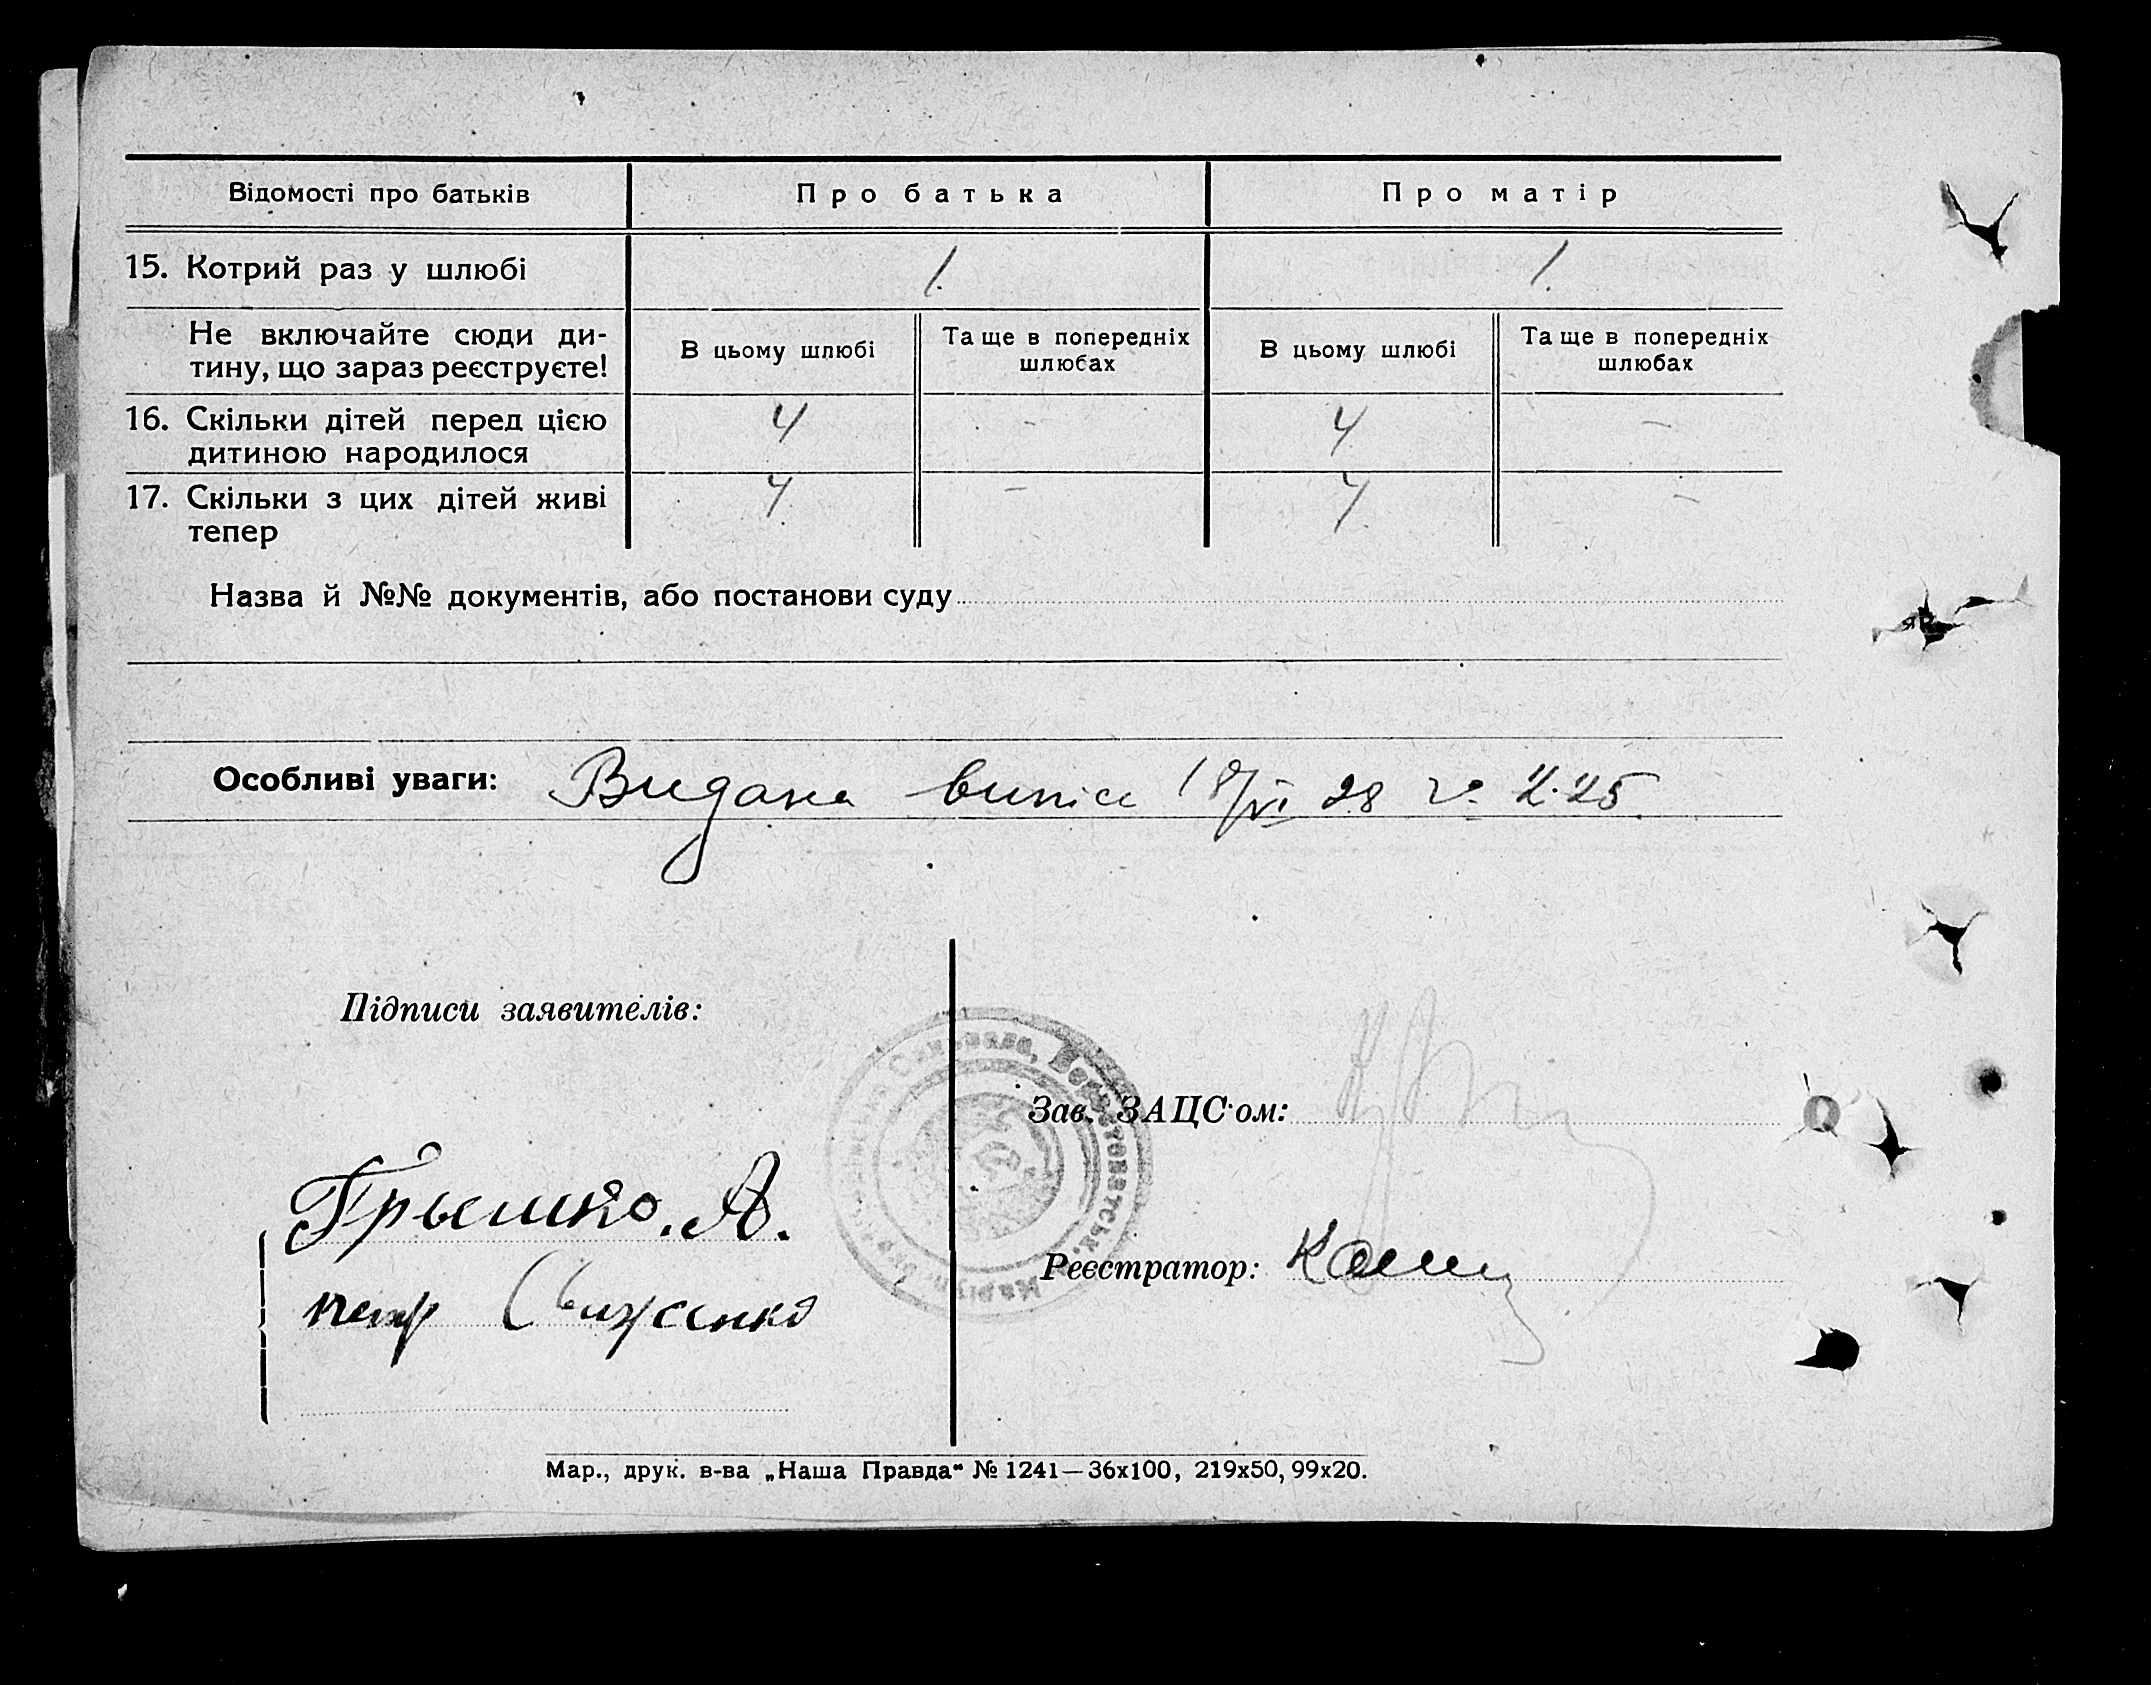 Відомості про батьків Про батька Про матір
15. Котрий раз у шлюбі 1. 1.
Не включайте сюди ди-
тину, що зараз реєструєте!
В цьому шлюбі
Та ще в попередніх
шлюбах
В цьому шлюбі
Та ще в попередніх
шлюбах
16. Скільки дітей перед цією
дитиною народилося
4 - 4 -
17. Скільки з цих дітей живі
тепер
4 - 4 -
Назва й №№ документів, або постанови суду
Особливі уваги: Видана випіс 18/VI 28
Підписи заявителів:
Зав. ЗАЦС'ом:
Грышко. А.
Реєстратор:
Мар., друк. в-ва „Наша Правда“ № 1241—36х100, 219х50, 99х20.